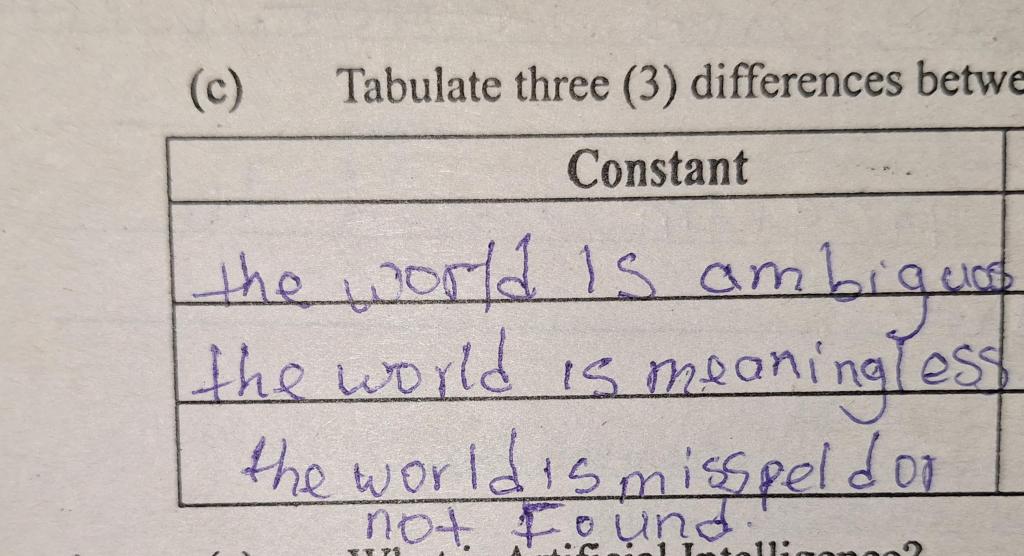 (c) Tabulate three (3) differences betwe
Constant
the world is ambiguos
the world is meaningless
the world is misspeld or
not Found.
Artificial Intelligence?